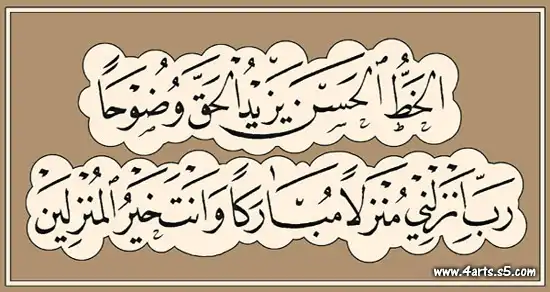 الخَطُّ الحَسَن يَزِيْدُ الحَقَّ وُضُوْحَاً
رَبِّ اَنْزِلْنِيْ مُنْزَلاً مُبَارَكَاً وَاَنْتَ خَيْرُ المُنْزِلِيْنَ
www.4arts.s5.com